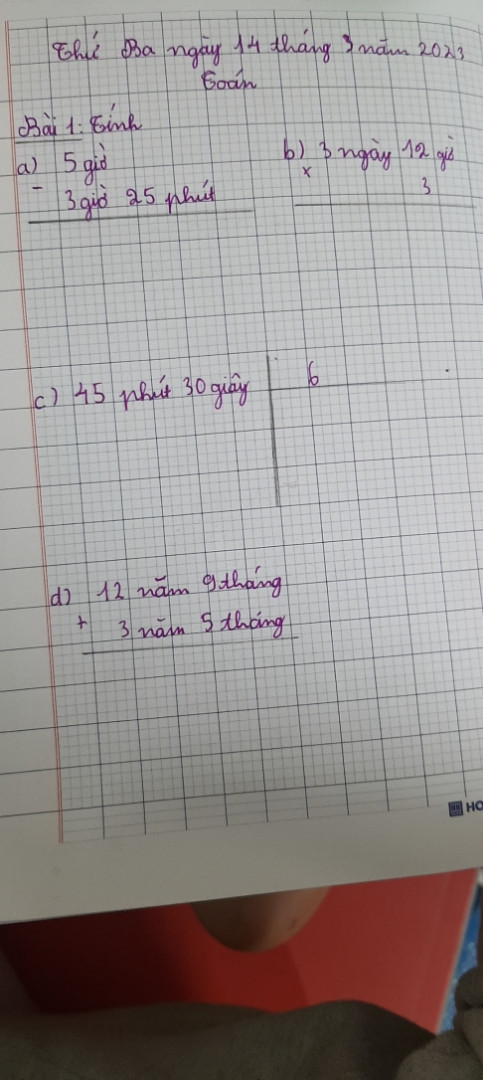 Thứ Ba ngày 14 tháng 3 năm 2023
Toán
Bài 1: Tính
a) 5 giờ
- 3 giờ 25 phút
b) 3 ngày 12 giờ
x 3
c) 45 phút 30 giây 6
d) 12 năm 9 tháng
+ 3 năm 5 tháng
HO